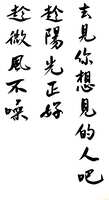 去見你想見的人吧
趁陽光正好
趁微風不噪